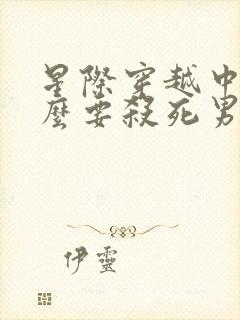 星際穿越中
麼要殺死男
伊靈